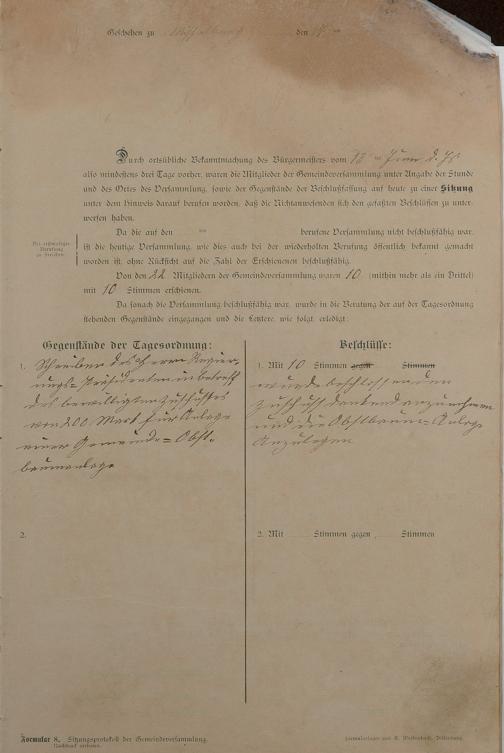 Geschehen zu den
Durch ortsübliche Bekanntmachung des Bürgermeisters vom 12ten Juni d. Js.
also mindestens drei Tage vorher, waren die Mitglieder der Gemeindeversammlung unter Angabe der Stunde
und des Ortes der Versammlung, sowie der Gegenstände der Beschlußfassung auf heute zu einer Sitzung
unter dem Hinweis darauf berufen worden, daß die Nichtanwesenden sich den gefaßten Beschlüssen zu unter-
werfen haben.
Bei erstmaliger
Berufung
zu streichen.
Da die auf den berufene Versammlung nicht beschlußfähig war,
ist die heutige Versammlung, wie dies auch bei der wiederholten Berufung öffentlich bekannt gemacht
worden ist, ohne Rücksicht auf die Zahl der Erschienenen beschlußfähig.
Von den 22 Mitgliedern der Gemeindeversammlung waren 10 (mithin mehr als ein Drittel)
mit 10 Stimmen erschienen.
Da sonach die Versammlung beschlußfähig war, wurde in die Beratung der auf der Tagesordnung
stehenden Gegenstände eingegangen und die Letztere, wie folgt, erledigt:
Gegenstände der Tagesordnung:
1. Schreiben des Herrn Regier-
ungs-Präsidenten in betreff
des bewilligten Zuschußes
von 200 Mark für Anlage
einer Gemeinde-Obst-
baumanlage
2.
Beschlüsse:
1. Mit 10 Stimmen gegen Stimmen
wurde beschlossen den
Zuschuß dankend anzunehmen
und die Obstbaum-Anlage
anzulegen
2. Mit Stimmen gegen Stimmen
Formular 8. Sitzungsprotokoll der Gemeindeversammlung.
Nachdruck verboten.
Formularlager von Dillenburg.